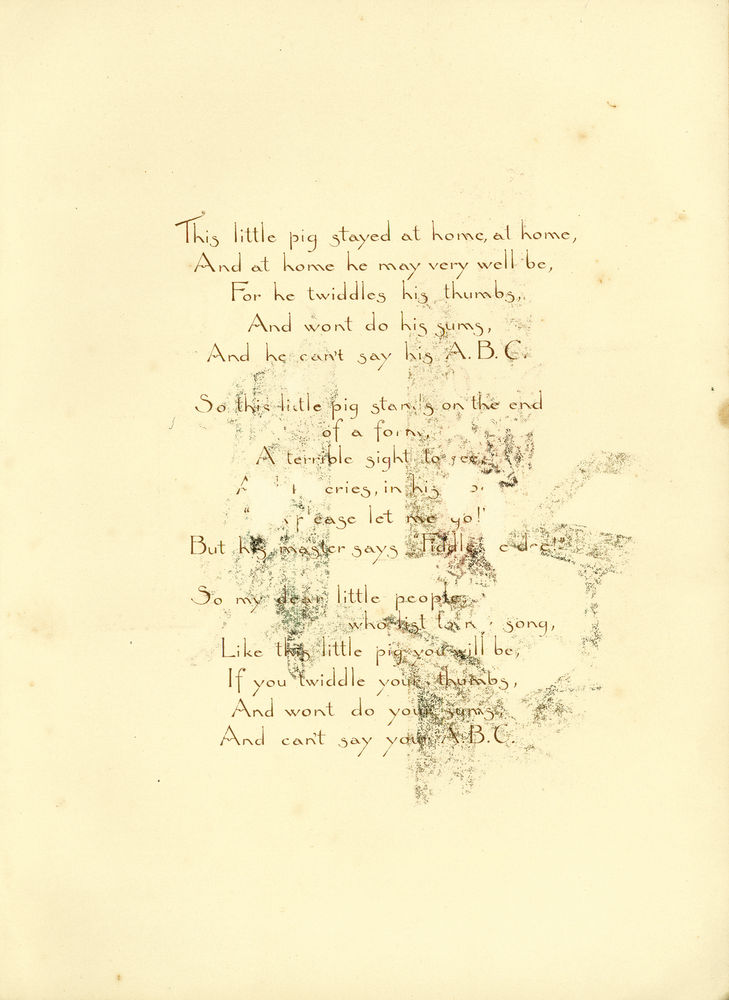 This little pig stayed at home, at home,
And at home he may very well be,
For he twiddles his thumbs,
And wont do his sums,
And he can't say his A. B. C.
So this little pig stands on the end
of a form,
A terrible sight to see,
cries, in his
please let me go!"
But his master says "Fiddle
So my dear little people
who list to my song,
Like this little pig you will be,
If you twiddle your thumbs,
And wont do your sums,
And can't say your A.B.C.